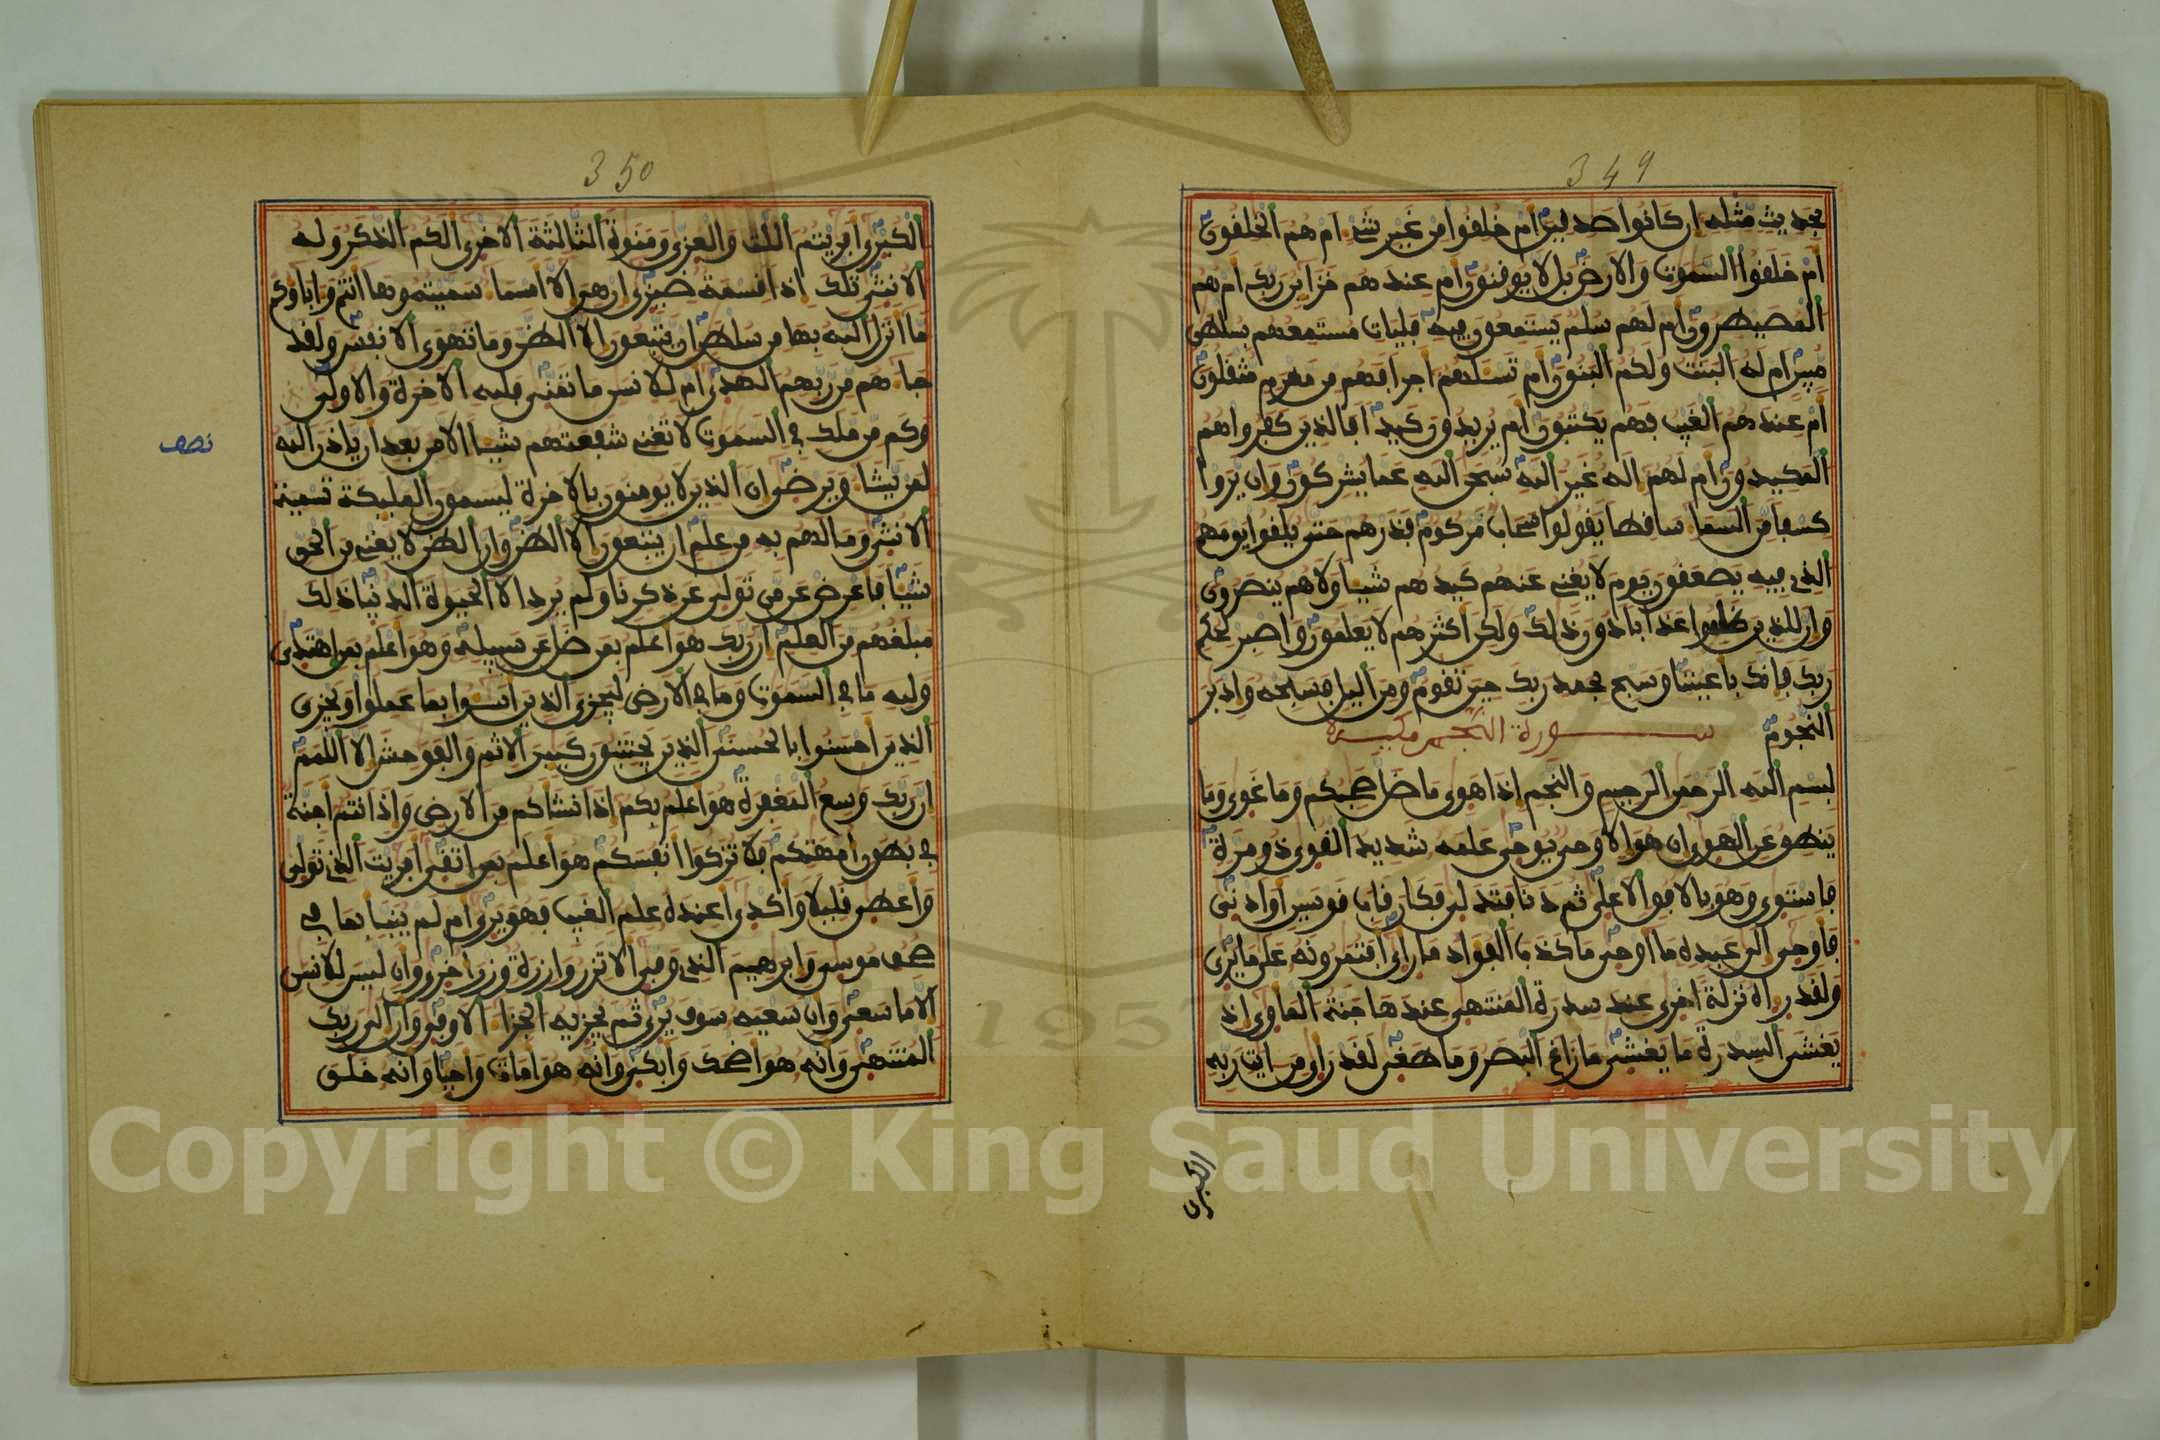 349
بحديث مثله ان كانوا صدفين ام خلفوا من غير شيء ام هم الخلفون
ام خلفوا السموت والارض بل لا يوفنون ام عندهم خزاين ربك ام هم
المصيطرون ام لهم سلم يستمعون فيه فليات مستمعهم بسلطن
مبين ام له البنت ولكم البنون ام تسلهم اجرا فهم من مغرم مثفلون
ام عندهم الغيب فهم يكتبون ام يريدون كيدا فالذين كفروا هم
المكيدون ام لهم اله غير الله سبحن الله عما يشركون وان يروا
كسفا من السما سافطا يفولوا سحاب مركوم فذرهم حتى يلفوا يومهم
الذي فيه يصعفون يوم لا يغني عنهم كيدهم شيا ولا هم ينصرون
وان للذين ظلموا عذابا دون ذلك ولكن اكثرهم لا يعلمون واصبر لحكم
ربك فانك باعيننا وسبح بحمد ربك حين تفوم ومن اليل فسبحه وادبر
النجوم سورة النجم مكية
بسم الله الرحمن الرحيم والنجم اذا هوى ما ضل صحبكم وما غوى وما
ينطق عن الهوى ان هو الا وحي يوحى علمه شديد الفوى ذو مرة
فاستوى وهو بالافق الاعلى ثم دنا فتدلى فكان فاب فوسين او ادنى
فاوحى الى عبده ما اوحى ما كذب الفواد ما راى افتمرونه على ما يرى
ولفد راه نزلة اخرى عند سدرة المنتهى عندها جنة الماوى اذ
يغشى السدرة ما يغشى ما زاغ البصر وما طغى لفد راى من ايت ربه
الكبرى
350
الكبرى افريتم اللت والعزى ومنوة الثالثة الاخرى الكم الذكر وله
الانثى تلك اذا فسمة ضيزى ان هي الا اسما سميتموها انتم واباوكم
ما انزل الله بها من سلطن ان يتبعون الا الظن وما تهوى الانفس ولفد
جاهم من ربهم الهدى ام للانسن ما تمنى فلله الاخرة والاولى
وكم من ملك في السموت لا تغني شفعتهم شيا الا من بعد ان ياذن الله
لمن يشا ويرضى ان الذين لا يومنون بالاخرة ليسمون المليكة تسمية
الانثى وما لهم به من علم ان يتبعون الا الظن وان الظن لا يغني من الحق
شيا فاعرض عن من تولى عن ذكرنا ولم يرد الا الحيوة الدنيا ذلك
مبلغهم من العلم ان ربك هو اعلم بمن ضل عن سبيله وهو اعلم بمن اهتدى
ولله ما في السموت وما في الارض ليجزي الذين اسوا بما عملوا ويجزي
الذين احسنوا بالحسنى الذين يجتنبون كبير الاثم والفوحش الا اللمم
ان ربك وسع المغفرة هو اعلم بكم اذ انشاكم من الارض واذ انتم اجنة
في بطون امهتكم فلا تزكوا انفسكم هو اعلم بمن اتفى افريت الذي تولى
واعطى فليلا واكدى اعنده علم الغيب فهو يرى ام لم ينبا بما في
صحف موسى وابرهيم الذي وفى الا تزر وازرة وزر اخرى وان ليس للانسن
الا ما سعى وان سعيه سوف يرى ثم يجزيه الجزا الاوفى وان الى ربك
المنتهى وانه هو اضحك وابكى وانه هو امات واحيا وانه خلق
نصف
Copyright © King Saud University
1957